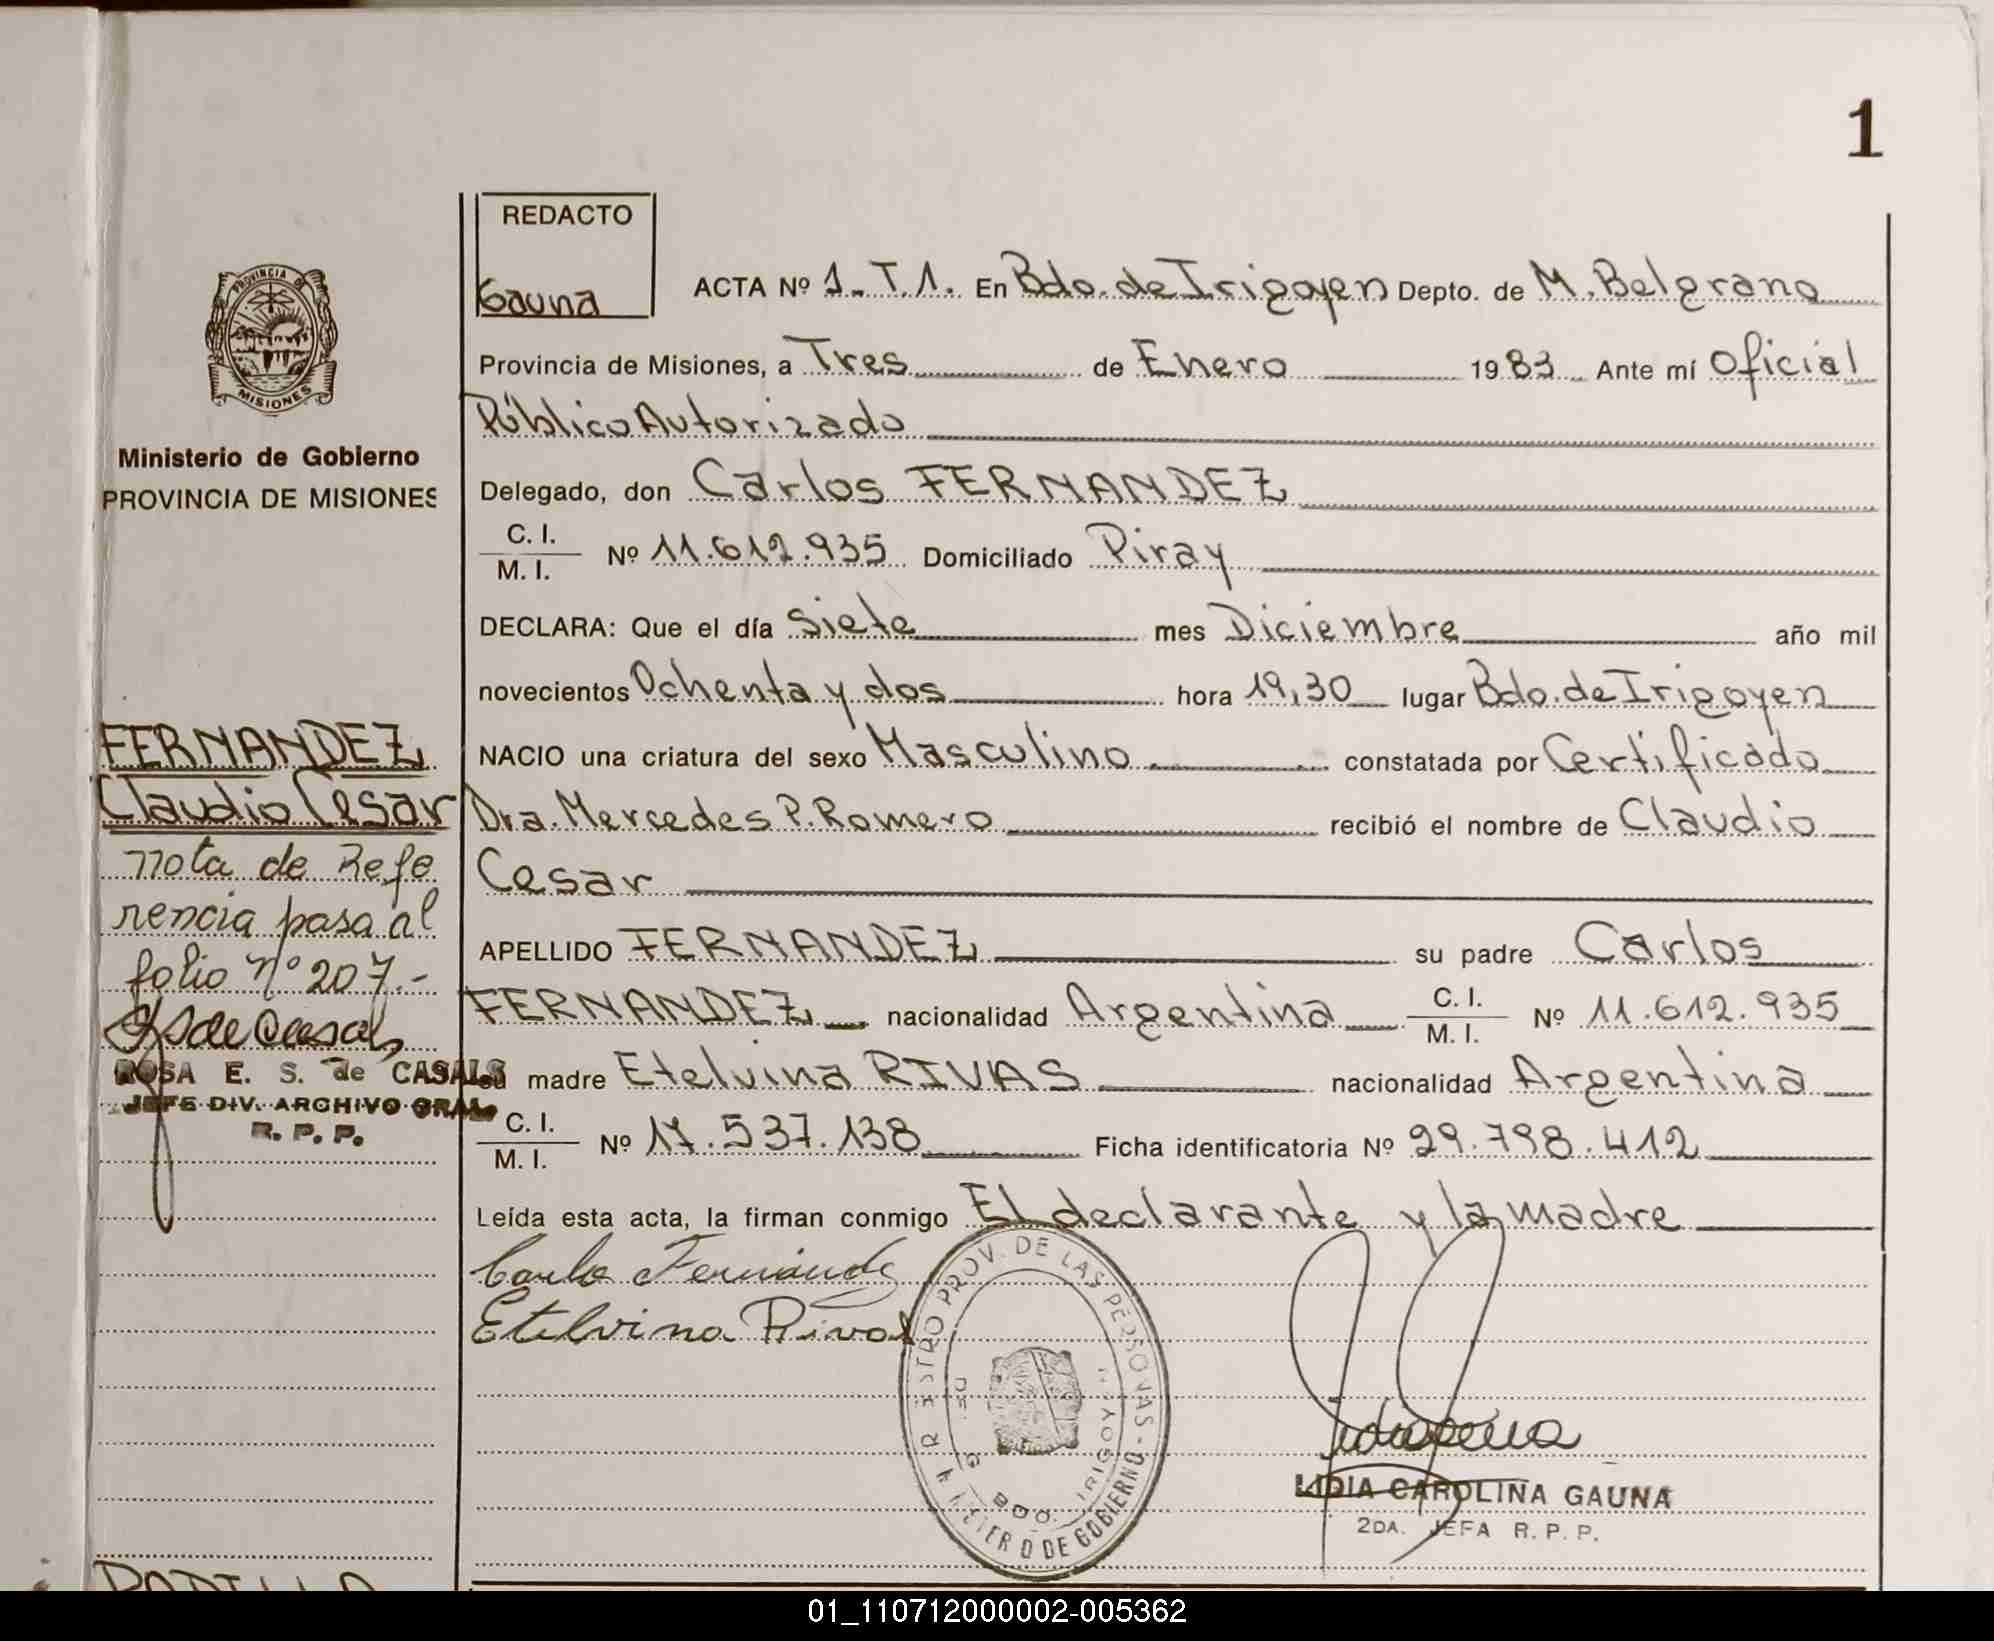 1
REDACTO
Gauna
ACTA Nº 1. T.1. En Bdo. de Irigoyen Depto. de M. Belgrano
Provincia de Misiones, a Tres de Enero 1983 Ante mí Oficial
Público Autorizado
Delegado, don Carlos FERNANDEZ
C. I.
M. I. Nº 11.612.935 Domiciliado Piray
DECLARA: Que el día Siete mes Diciembre año mil
novecientos Ochenta y dos hora 19,30 lugar Bdo. de Irigoyen
NACIO una criatura del sexo Masculino constatada por Certificado
Dra. Mercedes P. Romero recibió el nombre de Claudio
Cesar
APELLIDO FERNANDEZ su padre Carlos
FERNANDEZ nacionalidad Argentina C. I. M. I. Nº 11.612.935
su madre Etelvina RIVAS nacionalidad Argentina
C. I.
M. I. Nº 17.537.138 Ficha identificatoria Nº 29.798.412
Leída esta acta, la firman conmigo El declarante y la madre
Carlos Fernández
Etelvina Rivas
PROV. DE LAS PERSONAS - DE GOBIERNO
BDO. IRIGOYEN
LIDIA CAROLINA GAUNA
2DA. JEFA R. P. P.
PROVINCIA DE
MISIONES
Ministerio de Gobierno
PROVINCIA DE MISIONES
FERNANDEZ
Claudio Cesar
nota de Refe
rencia pasa al
folio nº 207.-
S de Casals
ROSA E. S. de CASALS
JEFE DIV. ARCHIVO GRAL.
R. P. P.
01_110712000002-005362